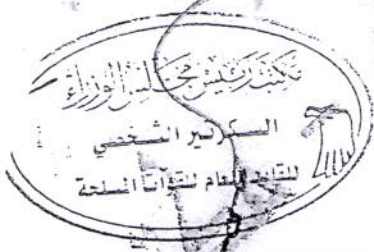 مكتب رئيس مجلس الوزراء
السكرتير الشخصي
للقائد العام للقوات المسلحة